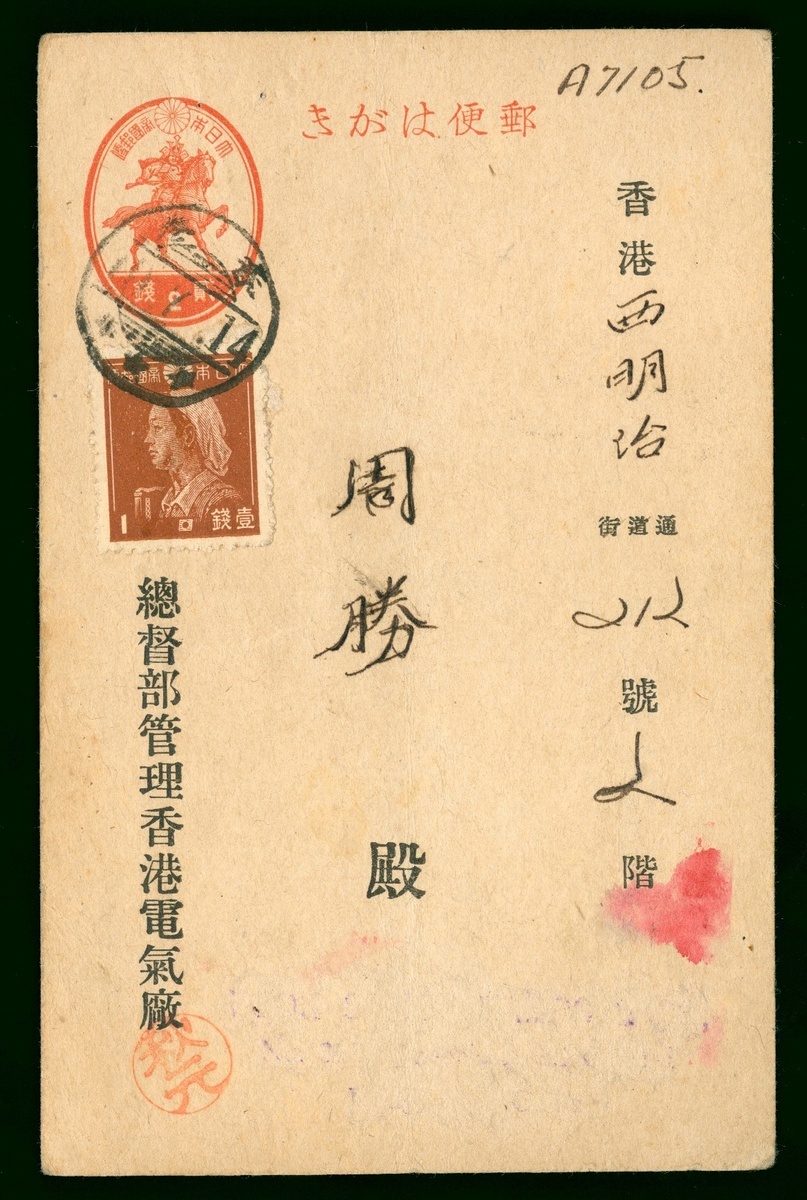 A7105.
郵便はがき
大日本帝國郵便
貳錢
14
大日本帝國郵便
1
壹錢
香港西明治
通道街
212
號
階
周勝
殿
總督部管理香港電氣廠